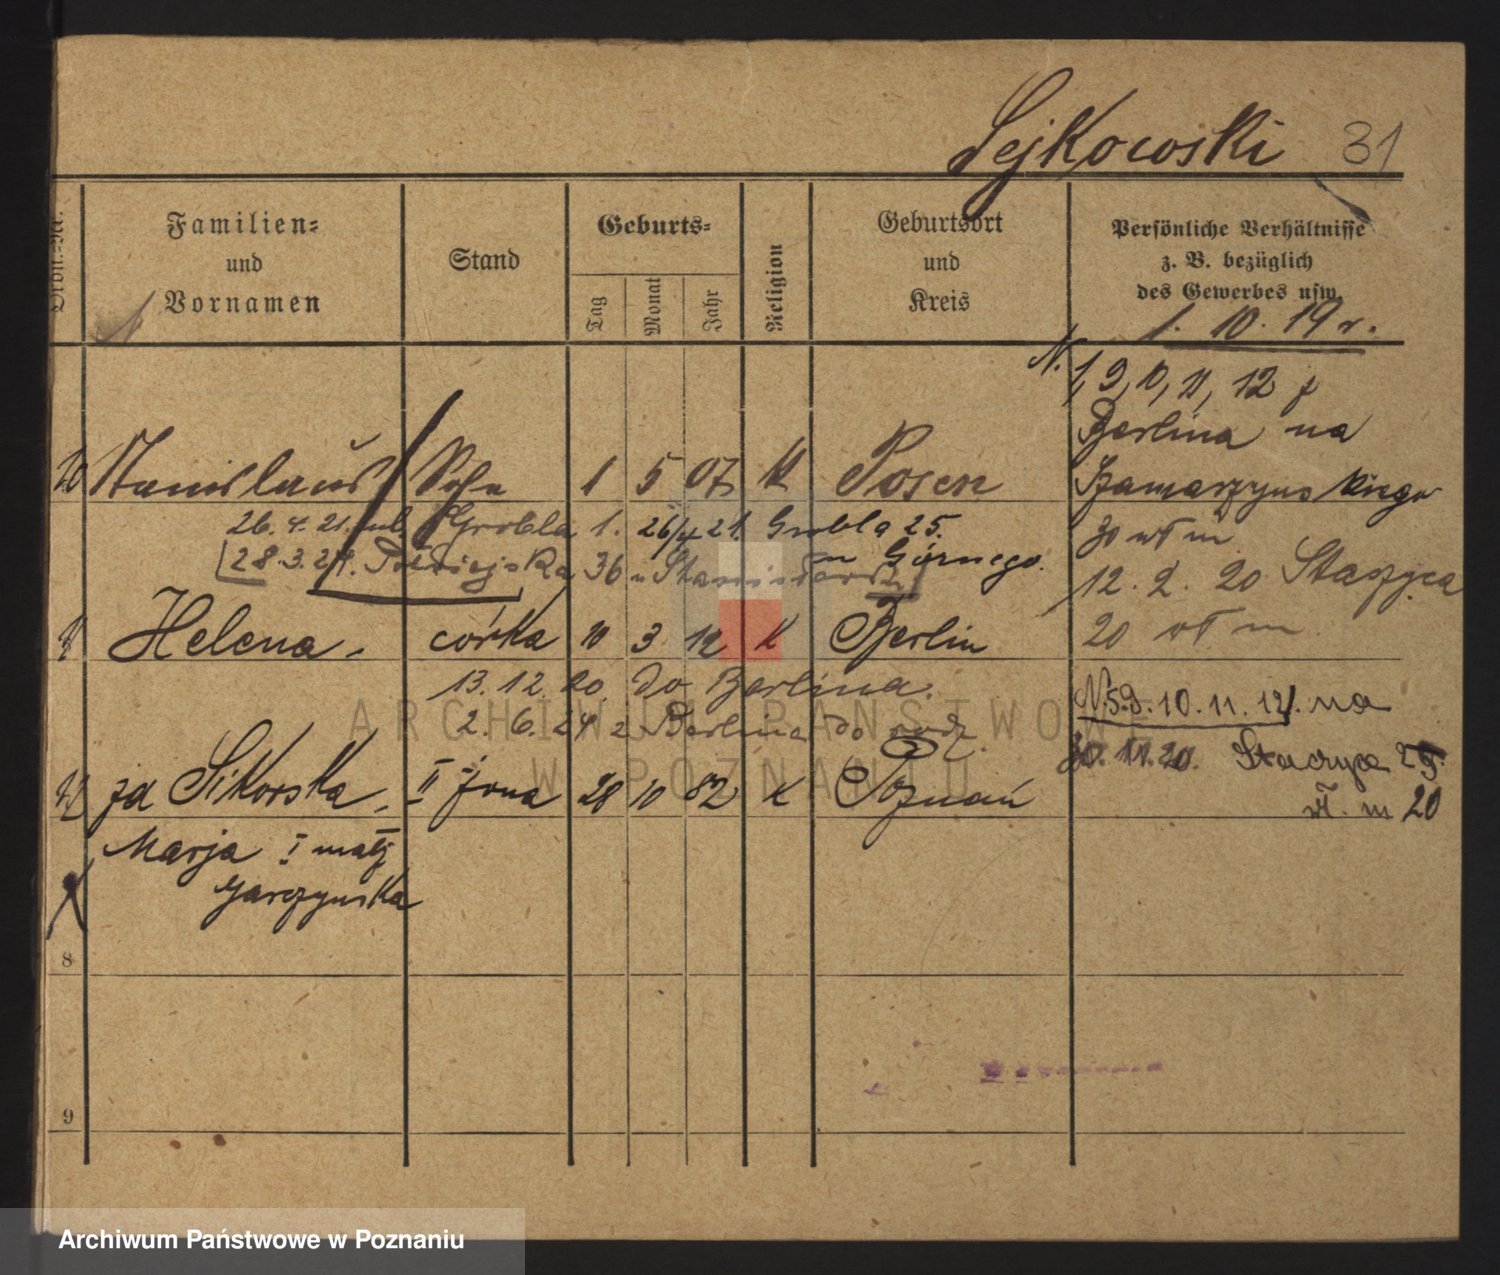 Lejkowski 31
Ordn.-Nr.
Familien=
und
Vornamen
Stand
Geburts=
Tag
Monat
Jahr
Religion
Geburtsort
und
Kreis
Persönliche Verhältnisse
z. B. bezüglich
des Gewerbes usw.
1. 10. 19 r.
N. 1, 9, 10, 11, 12 z
Berlina na
10 Stanislaus Sohn 1 5 07 K Posen
26. 4. 21. Grobla 1. 26/4 21. Grobla 25.
u Górnego.
28.3.24. 36 u
30 wł m
12. 2. 20 Staszyca
20 wł m
11 Helena córka 10 3 12 K Berlin
13. 12. 20. do Berlina.
2. 6. 24 z Berlina do rodz.
N. 5.9. 10. 11. 12. na
30. 11. 20. Staszyca
wł. m 20
12 za Sikorska, II żona 28 10 82 K Poznań
Marja I małż
Garczyńska
8
9
ARCHIWUM PAŃSTWOWE
W POZNANIU
Archiwum Państwowe w Poznaniu